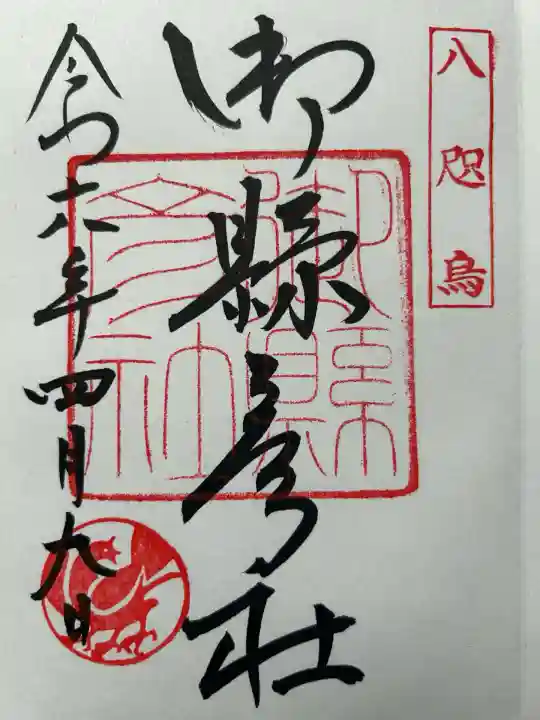 八咫烏
御縣彦社
御縣彦社
令和六年四月九日